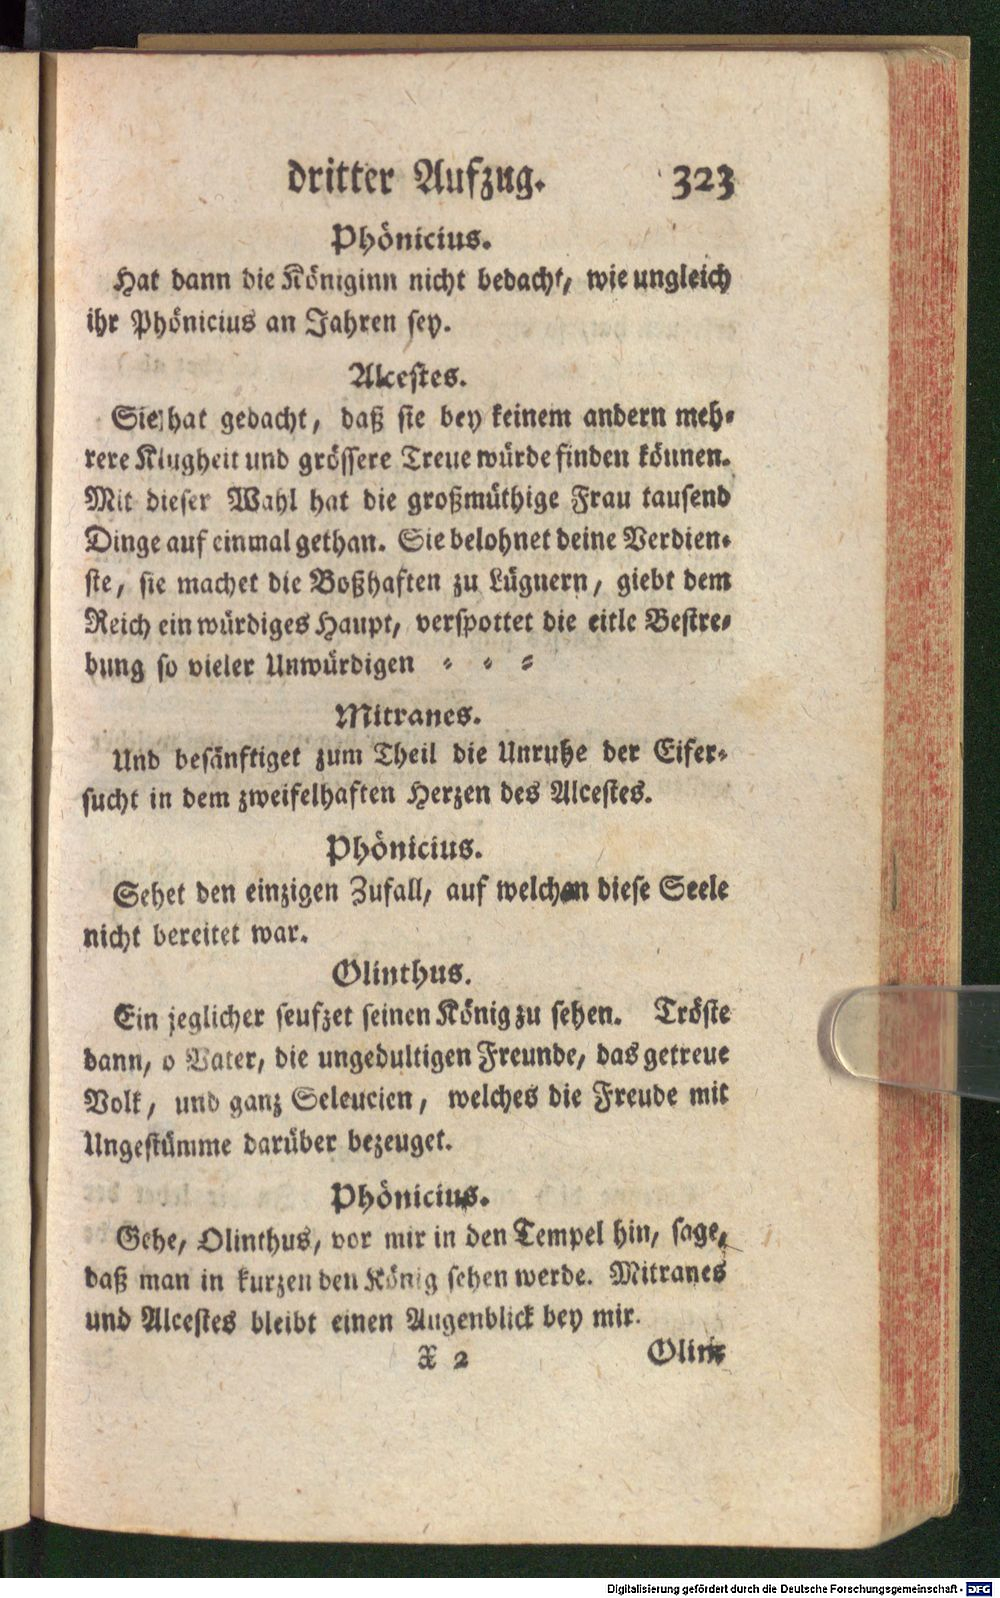 dritter Aufzug. 323
Phönicius.
Hat dann die Königinn nicht bedacht, wie ungleich
ihr Phönicius an Jahren sey.
Alcestes.
Sie hat gedacht, daß sie bey keinem andern meh-
rere Klugheit und grössere Treue würde finden können.
Mit dieser Wahl hat die großmüthige Frau tausend
Dinge auf einmal gethan. Sie belohnet deine Verdien-
ste, sie machet die Boßhaften zu Lügnern, giebt dem
Reich ein würdiges Haupt, verspottet die eitle Bestre-
bung so vieler Unwürdigen - - -
Mitranes.
Und besänftiget zum Theil die Unruhe der Eifer-
sucht in dem zweifelhaften Herzen des Alcestes.
Phönicius.
Sehet den einzigen Zufall, auf welchen diese Seele
nicht bereitet war.
Olinthus.
Ein jeglicher seufzet seinen König zu sehen. Tröste
dann, o Vater, die ungedultigen Freunde, das getreue
Volk, und ganz Seleucien, welches die Freude mit
Ungestümme darüber bezeuget.
Phönicius.
Gehe, Olinthus, vor mir in den Tempel hin, sage,
daß man in kurzen den König sehen werde. Mitranes
und Alcestes bleibt einen Augenblick bey mir.
X 2 Olin-
Digitalisierung gefördert durch die Deutsche Forschungsgemeinschaft - DFG